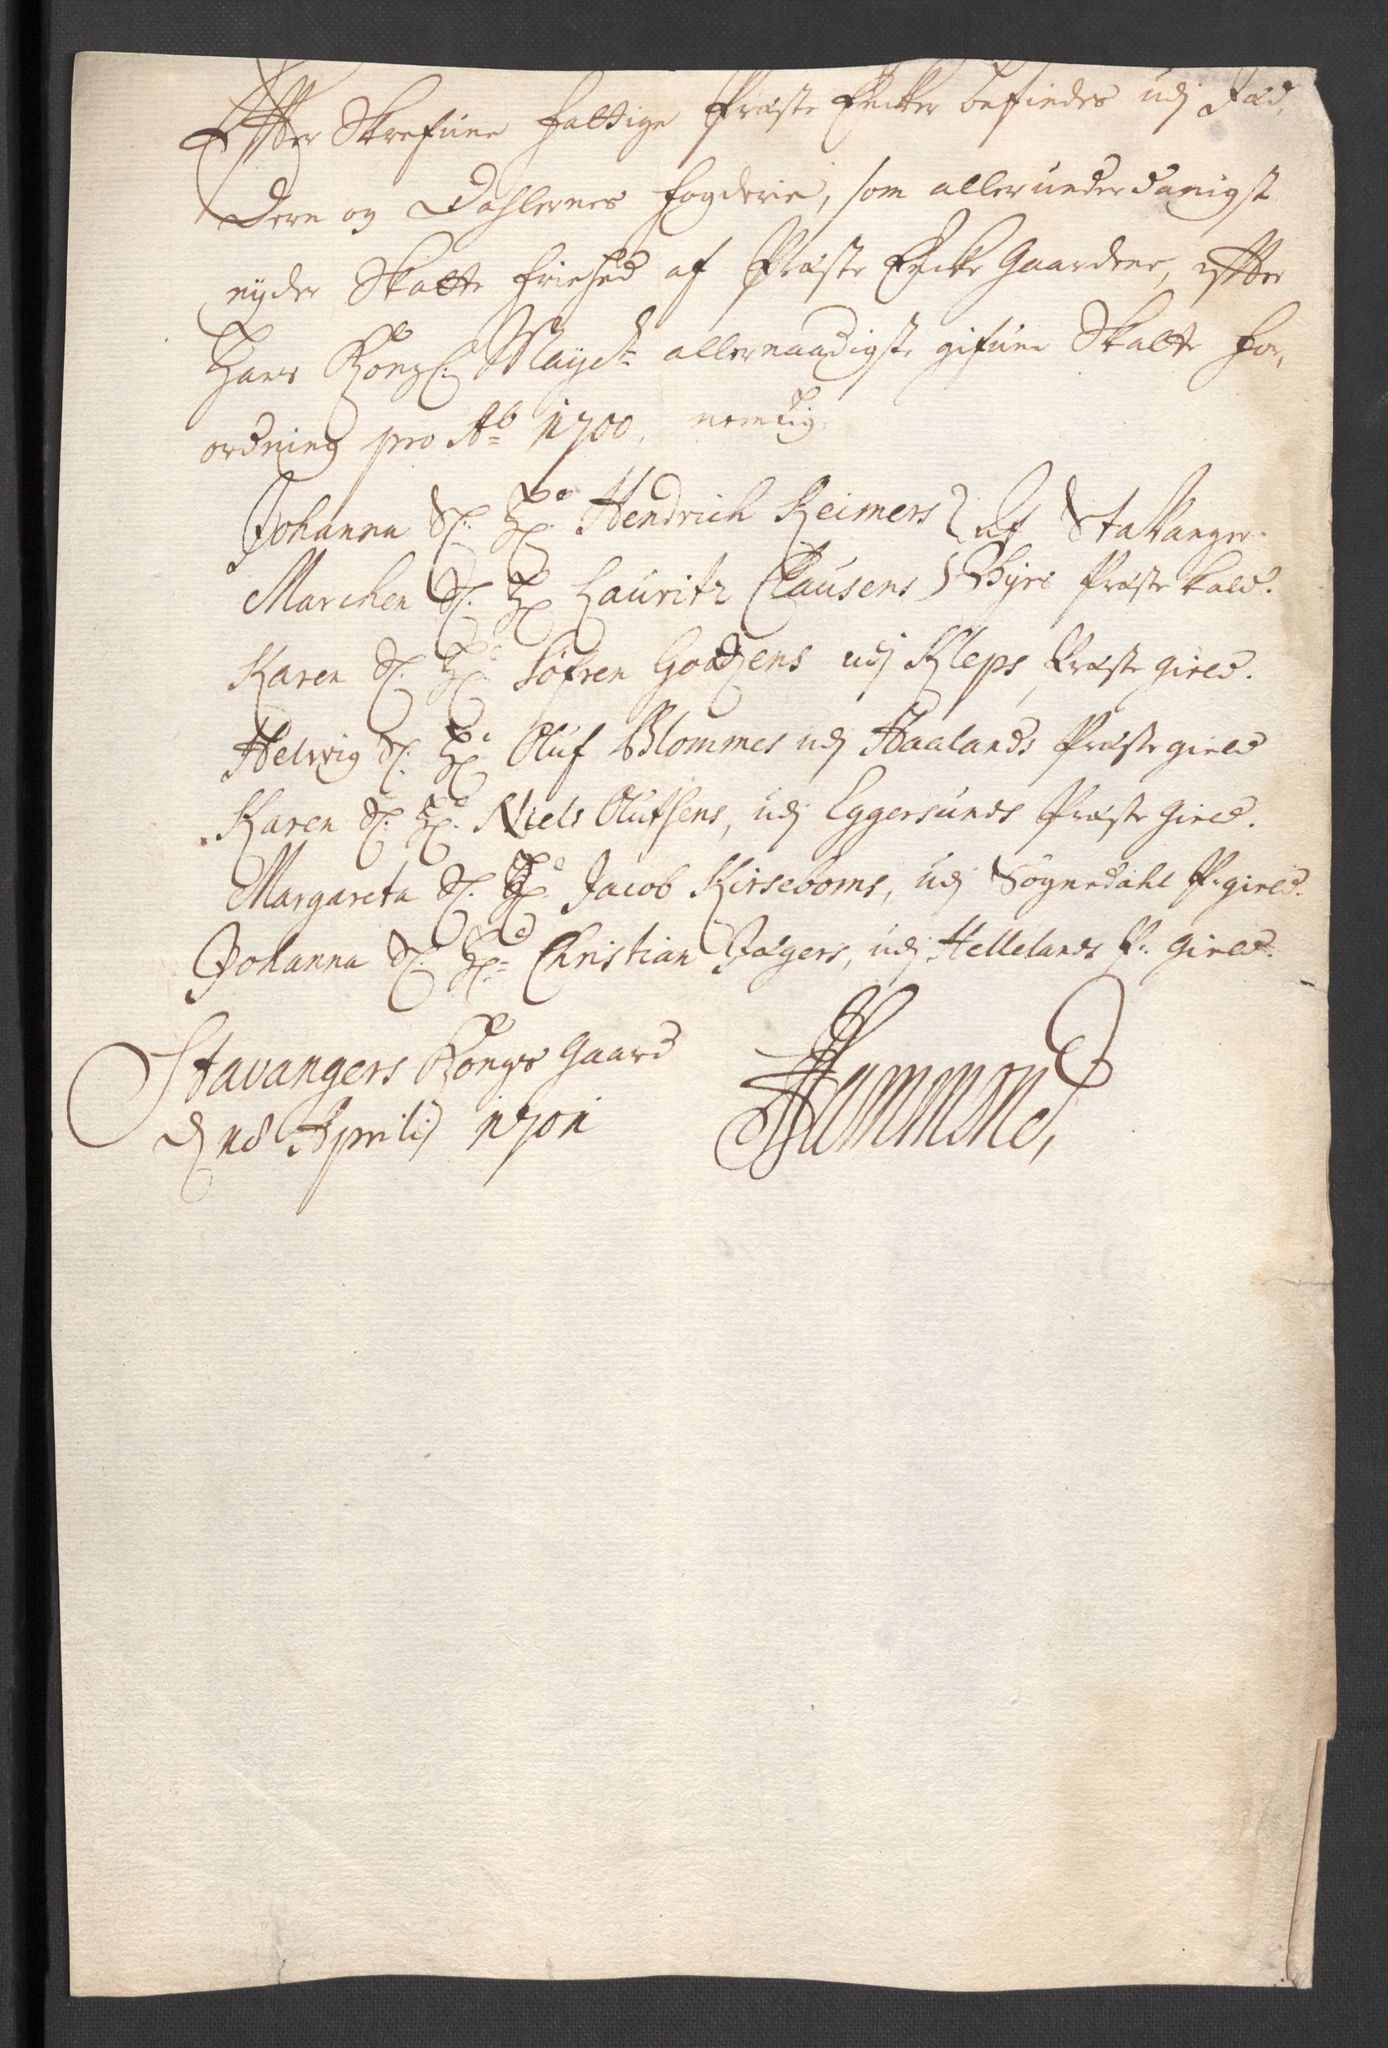 Effter Skrefune fattige Præste Encker befindes udj Jæd,
dern og Dahlernes fogderie, som allerunderdanigst
nyder Skatte friehed af Præste Encke Gaardene, effter
Hans Kongl: Mayts allernaadigste gifune Skatte for,
ordning pro Ao 1700, nemblig
Johanna Sl: Hr: Hendrich Reimers } udj StaVanger
Marchen Sl: Hr Lauritz Clausens } Byes Præste kald.
Karen Sl: Hr: Søfren Godtzens udj Kleps Præste gield.
Helwig Sl: Hr Oluf Blommes udj Haalands Præste gield
Karen Sl: Hr: Niels Olufsens, udj Eggersunds Præste gield.
Margareta Sl: Hr Jacob Kirseboms, udj Sognedahl P: gield.
Johanna Sl: Hr: Christian Jægers, udj Hellelands P: gield.
Stavangers Kongs Gaard
d 18 Aprilij 1701
Hammond,